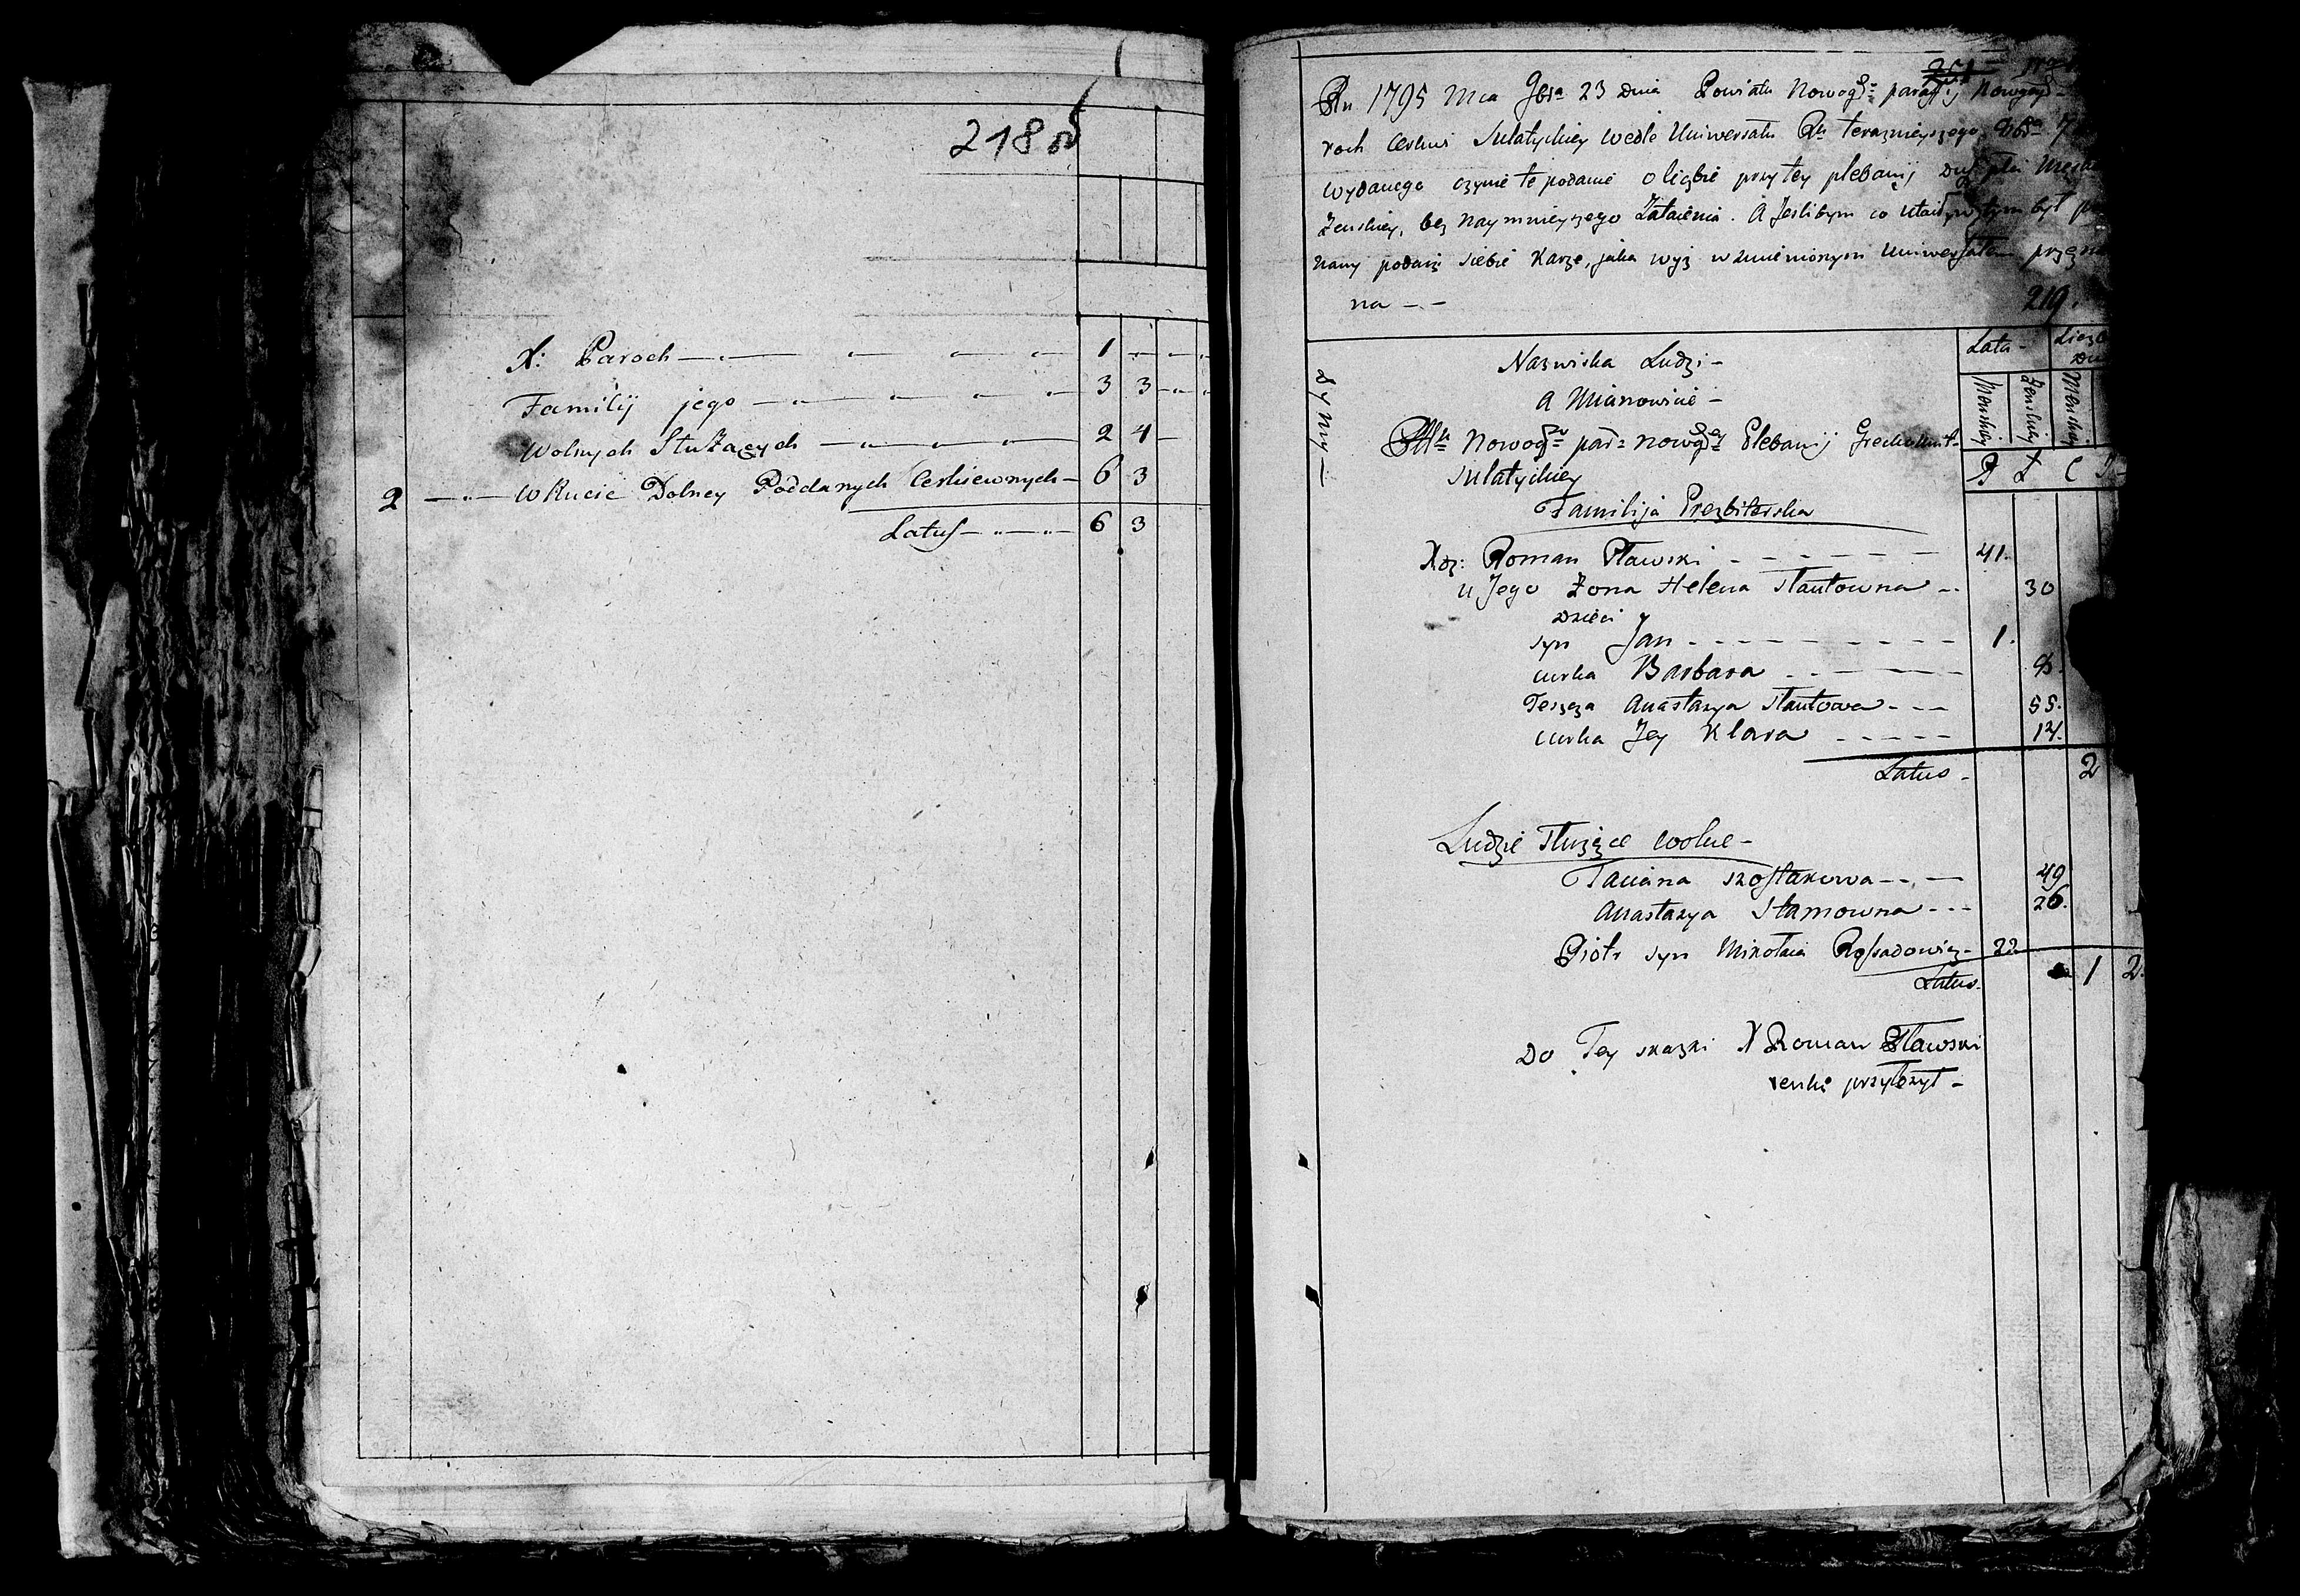 218 об
X: Paroch 1
Familij jego 3 3
Wolnych Służących 2 4
2 w Rucie Dolney Poddanych Cerkiewnych 6 3
Latus 6 3
Ru 1795 Mca 9bra 23 Dnia Powiatu Nowogo parafij Nowogo
roch Cerkwi Sulatyckiey wedle Uniwersału Ru terazniejszego 8bra 7
wydanego czynie te podanie o liczbie przy tey plebanij Dusz płci Męsk
Zenskiey, bez naymnieyszego Zataienia. A Jeslibym co utaił w tym był
nany podaię siebie Karze, jaka wyż wzmienionym Uniwersałem przezna
na
219.
Nazwiska Ludzi
A Mianowicie
Dymy
Lata
Liczb
Du
Menskiey
Zenskiey
Menskiey
Ptu Nowogo par: Nowogey Plebanij Greckounit.
Sulatyckiey
Familija Prezbiterska
Xdz: Roman Pławski 41.
u Jego Zona Helena Stautowna 30
Dzieci
syn Jan 1.
curka Barbara 8.
Teszcza Anastazya Stautowa 55.
curka Jey Klara 14.
Latus 2
Ludzie Służące wolne
Taciana Szostakowa 49
Anastazya Stamowna 26.
Piotr syn Mikołaia Rossadowicz 22
Latus. 1 2.
Do Tey skazki X Roman Pławski
renke przyłożył